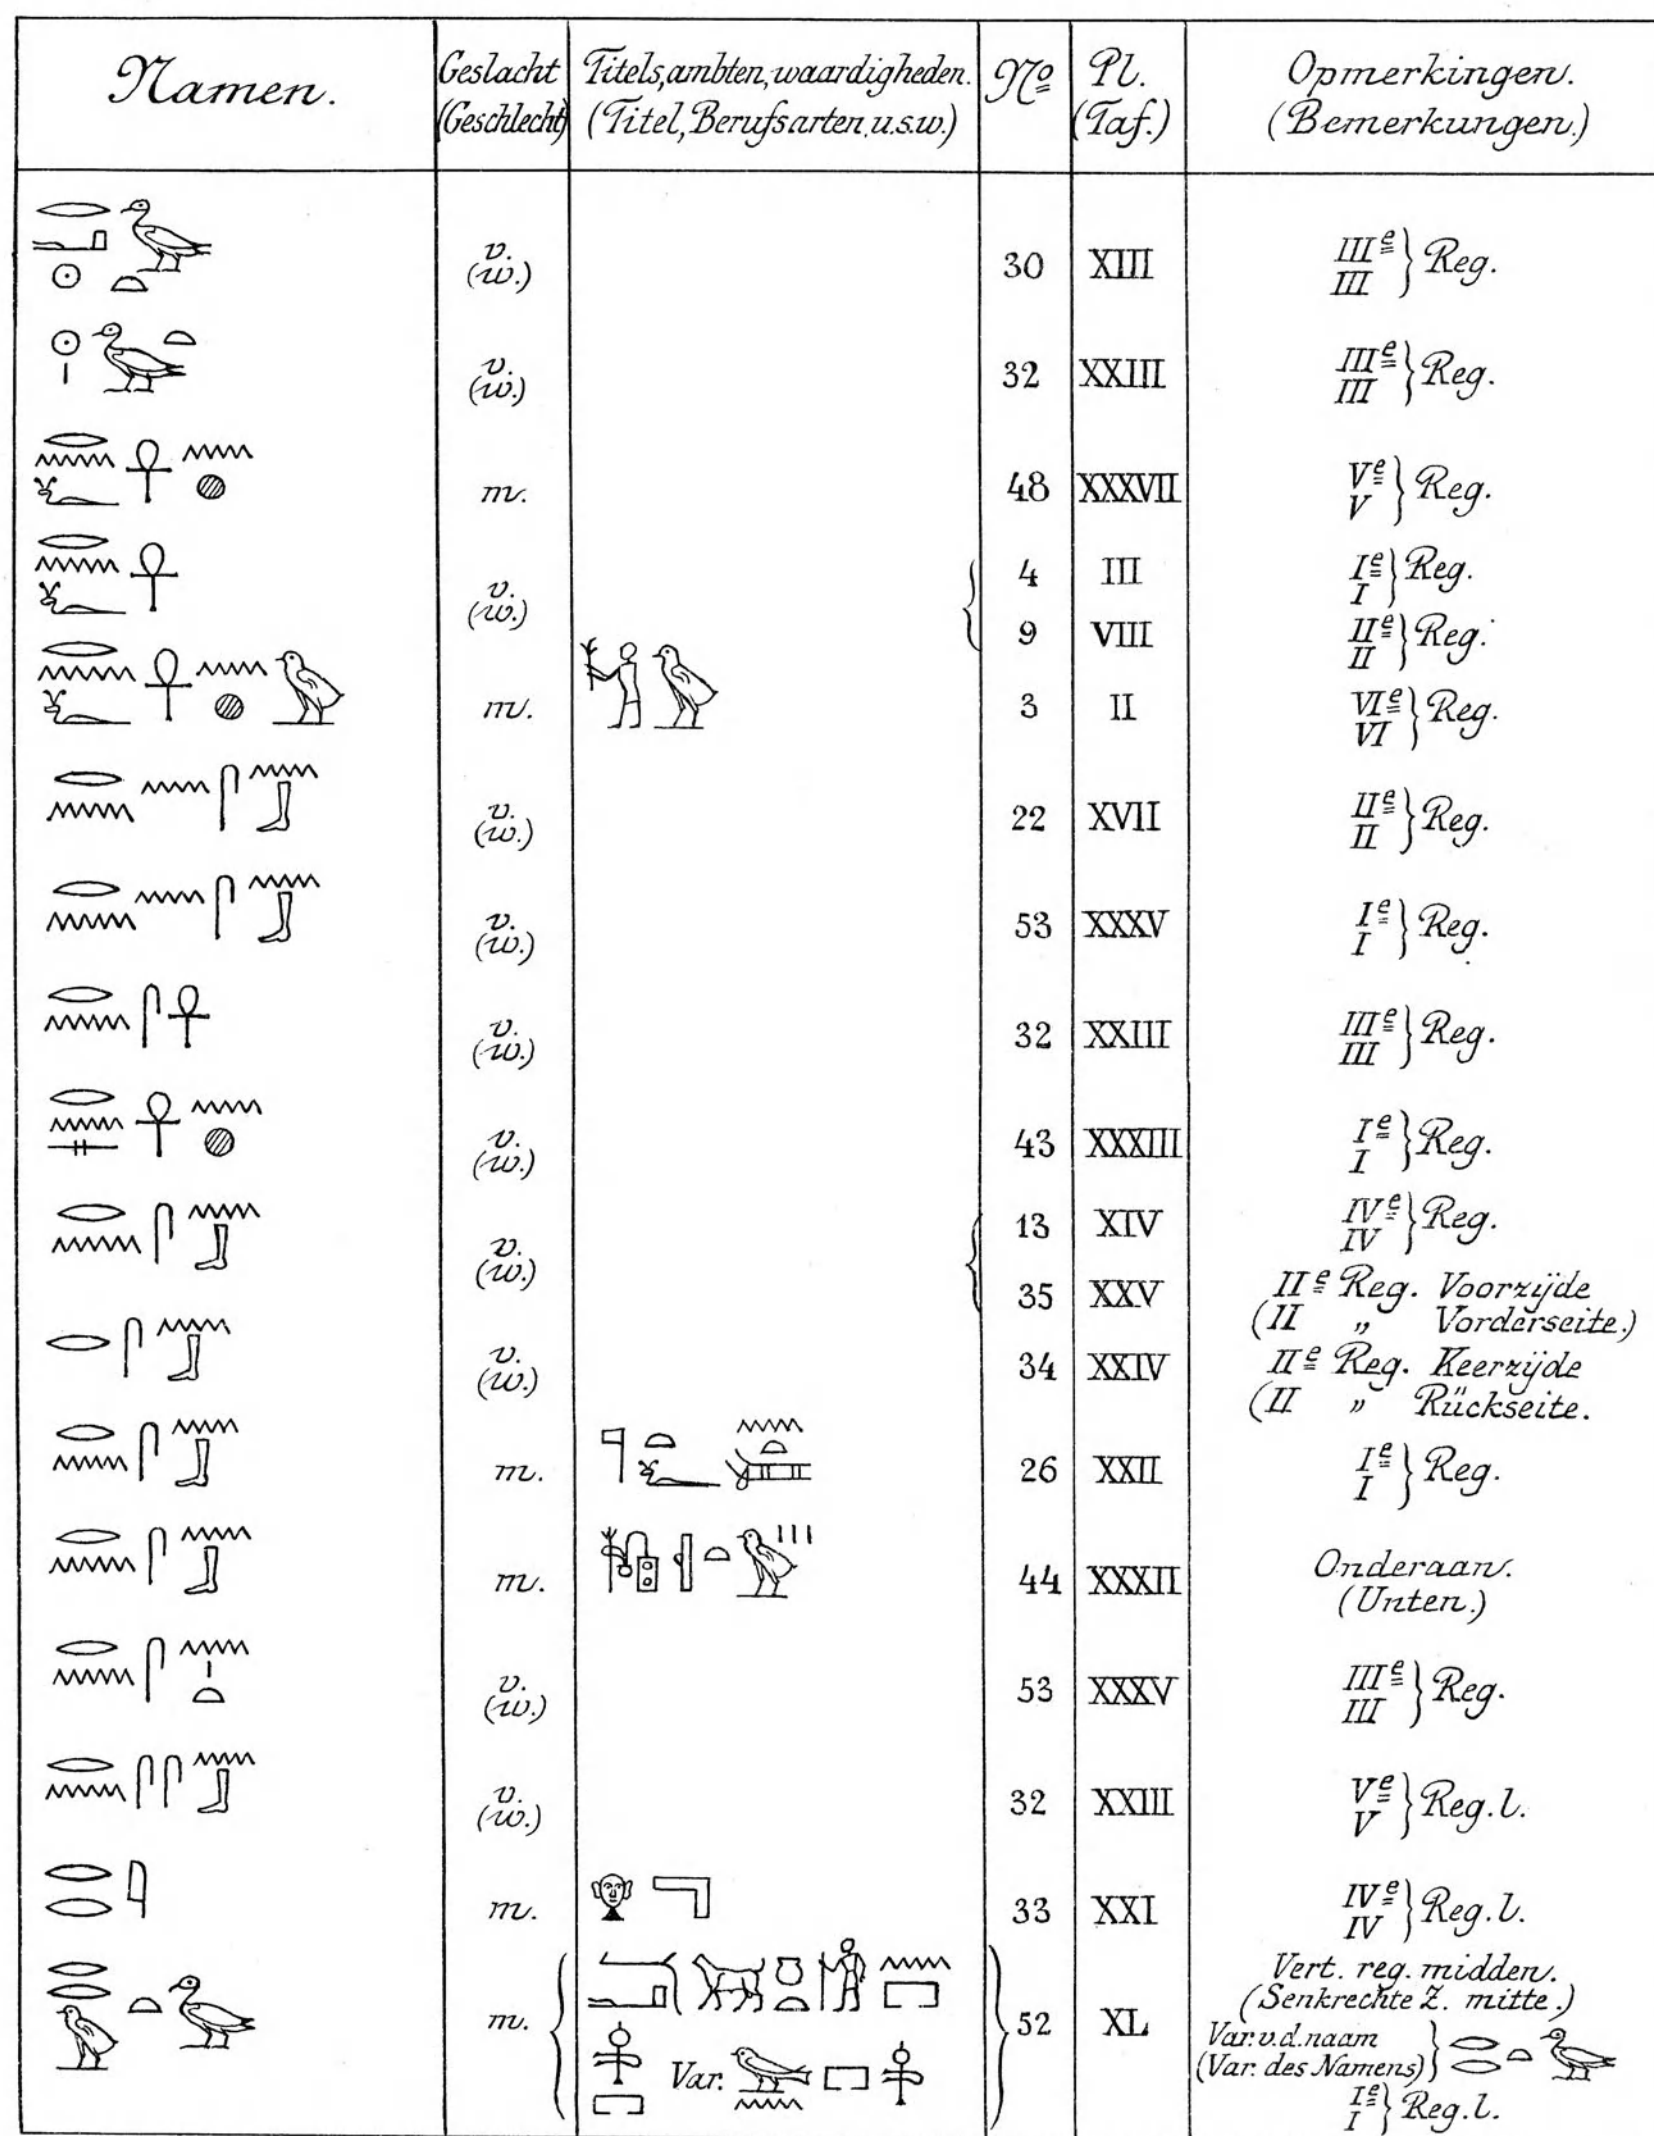 Namen.
Geslacht
(Geschlecht)
Titels, ambten, waardigheden.
(Titel, Berufsarten, u.s.w.)
Nº
Pl.
(Taf.)
Opmerkingen.
(Bemerkungen.)
𓂋𓂝𓇳𓅭𓏏 v. (w.) 30 XIII IIIe III } Reg.
𓇳𓏤𓅭𓏏 v. (w.) 32 XXIII IIIe III } Reg.
𓂋𓈖𓆑𓋹𓈖𓐍 m. 48 XXXVII Ve V } Reg.
𓂋𓈖𓆑𓋹 v. (w.) { 4 III Ie I } Reg.
9 VIII IIe II } Reg.
𓂋𓈖𓆑𓋹𓈖𓐍𓅱 m. 3 II VIe VI } Reg.
𓂋𓈖𓈖𓋴𓈖𓃀 v. (w.) 22 XVII IIe II } Reg.
𓂋𓈖𓈖𓋴𓈖𓃀 v. (w.) 53 XXXV Ie I } Reg.
𓂋𓈖𓋴𓋹 v. (w.) 32 XXIII IIIe III } Reg.
𓂋𓈖𓊃𓋹𓈖𓐍 v. (w.) 43 XXXIII Ie I } Reg.
𓂋𓈖𓋴𓈖𓃀 v. (w.) { 13 XIV IVe IV } Reg.
35 XXV IIe Reg. Voorzijde
(II " Vorderseite.)
𓂋𓋴𓈖𓃀 v. (w.) 34 XXIV IIe Reg. Keerzijde
(II " Rückseite.
𓂋𓈖𓋴𓈖𓃀 m. 26 XXII Ie I } Reg.
𓂋𓈖𓋴𓈖𓃀 m. 44 XXXII Onderaan.
(Unten.)
𓂋𓈖𓋴𓈖𓏤𓏏 v. (w.) 53 XXXV IIIe III } Reg.
𓂋𓈖𓋴𓋴𓈖𓃀 v. (w.) 32 XXIII Ve V } Reg. l.
𓂋𓂋𓇋 m. 𓁷 33 XXI IVe IV } Reg. l.
𓂋𓂋𓅱𓏏𓅭 m. { Var. } 52 XL Vert. reg. midden.
(Senkrechte Z. mitte.)
Var. v. d. naam
(Var. des Namens) } 𓂋𓂋𓏏𓅭
Ie I } Reg. l.